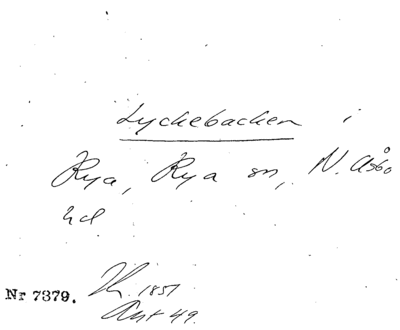 Lyckebacken i
Rya, Rya sn, N. Åsbo
hd
Nr 7379.
1851
Akt 49.